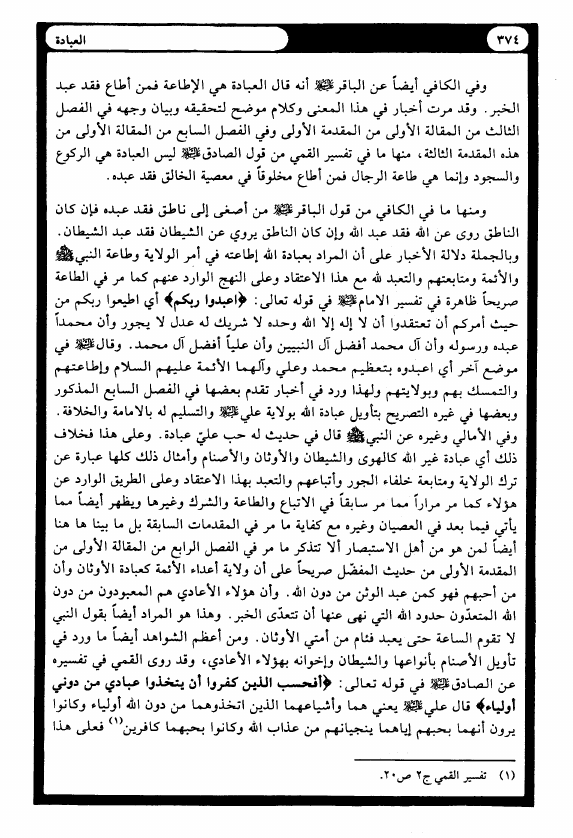 ٣٧٤
العبادة
وفي الكافي أيضاً عن الباقر ﷺ أنه قال العبادة هي الإطاعة فمن أطاع فقد عبد
الخبر. وقد مرت أخبار في هذا المعنى وكلام موضح لتحقيقه وبيان وجهه في الفصل
الثالث من المقالة الأولى من المقدمة الأولى وفي الفصل السابع من المقالة الأولى من
هذه المقدمة الثالثة، منها ما في تفسير القمي من قول الصادق ليس العبادة هي الركوع
والسجود وإنما هي طاعة الرجال فمن أطاع مخلوقاً في معصية الخالق فقد عبده.
ومنها ما في الكافي من قول الباقر من أصغى إلى ناطق فقد عبده فإن كان
الناطق روى عن الله فقد عبد الله وإن كان الناطق يروي عن الشيطان فقد عبد الشيطان.
وبالجملة دلالة الأخبار على أن المراد بعبادة الله إطاعته في أمر الولاية وطاعة النبي ﷺ
والأئمة ومتابعتهم والتعبد لله مع هذا الاعتقاد وعلى النهج الوارد عنهم كما مر في الطاعة
صريحاً ظاهرة في تفسير الامام في قوله تعالى: ﴿اعبدوا ربكم﴾ أي اطيعوا ربكم من
حيث أمركم أن تعتقدوا أن لا إله إلا الله وحده لا شريك له عدل لا يجور وأن محمداً
عبده ورسوله وأن آل محمد أفضل آل النبيين وأن علياً أفضل آل محمد. وقال في
موضع آخر أي اعبدوه بتعظيم محمد وعلي وآلهما الأئمة عليهم السلام وإطاعتهم
والتمسك بهم وبولايتهم ولهذا ورد في أخبار تقدم بعضها في الفصل السابع المذكور
وبعضها في غيره التصريح بتأويل عبادة الله بولاية علي والتسليم له بالامامة والخلافة.
وفي الأمالي وغيره عن النبي ﷺ قال في حديث له حب عليّ عبادة. وعلى هذا فخلاف
ذلك أي عبادة غير الله كالهوى والشيطان والأوثان والأصنام وأمثال ذلك كلها عبارة عن
ترك الولاية ومتابعة خلفاء الجور وأتباعهم والتعبد بهذا الاعتقاد وعلى الطريق الوارد عن
هؤلاء كما مر مراراً مما مر سابقاً في الاتباع والطاعة والشرك وغيرها ويظهر أيضاً مما
يأتي فيما بعد في العصيان وغيره مع كفاية ما مر في المقدمات السابقة بل ما بينا ها هنا
أيضاً لمن هو من أهل الاستبصار ألا تتذكر ما مر في الفصل الرابع من المقالة الأولى من
المقدمة الأولى من حديث المفضّل صريحاً على أن ولاية أعداء الأئمة كعبادة الأوثان وأن
من أحبهم فهو كمن عبد الوثن من دون الله. وأن هؤلاء الأعادي هم المعبودون من دون
الله المتعدّون حدود الله التي نهى عنها أن تتعدّى الخبر. وهذا هو المراد أيضاً بقول النبي
لا تقوم الساعة حتى يعبد فئام من أمتي الأوثان. ومن أعظم الشواهد أيضاً ما ورد في
تأويل الأصنام بأنواعها والشيطان وإخوانه بهؤلاء الأعادي، وقد روى القمي في تفسيره
عن الصادق في قوله تعالى: ﴿أفحسب الذين كفروا أن يتخذوا عبادي من دوني
أولياء﴾ قال علي يعني هما وأشياعهما الذين اتخذوهما من دون الله أولياء وكانوا
يرون أنهما بحبهم إياهما ينجيانهم من عذاب الله وكانوا بحبهما كافرين(١) فعلى هذا
(١) تفسير القمي ج٢ ص٢٠.